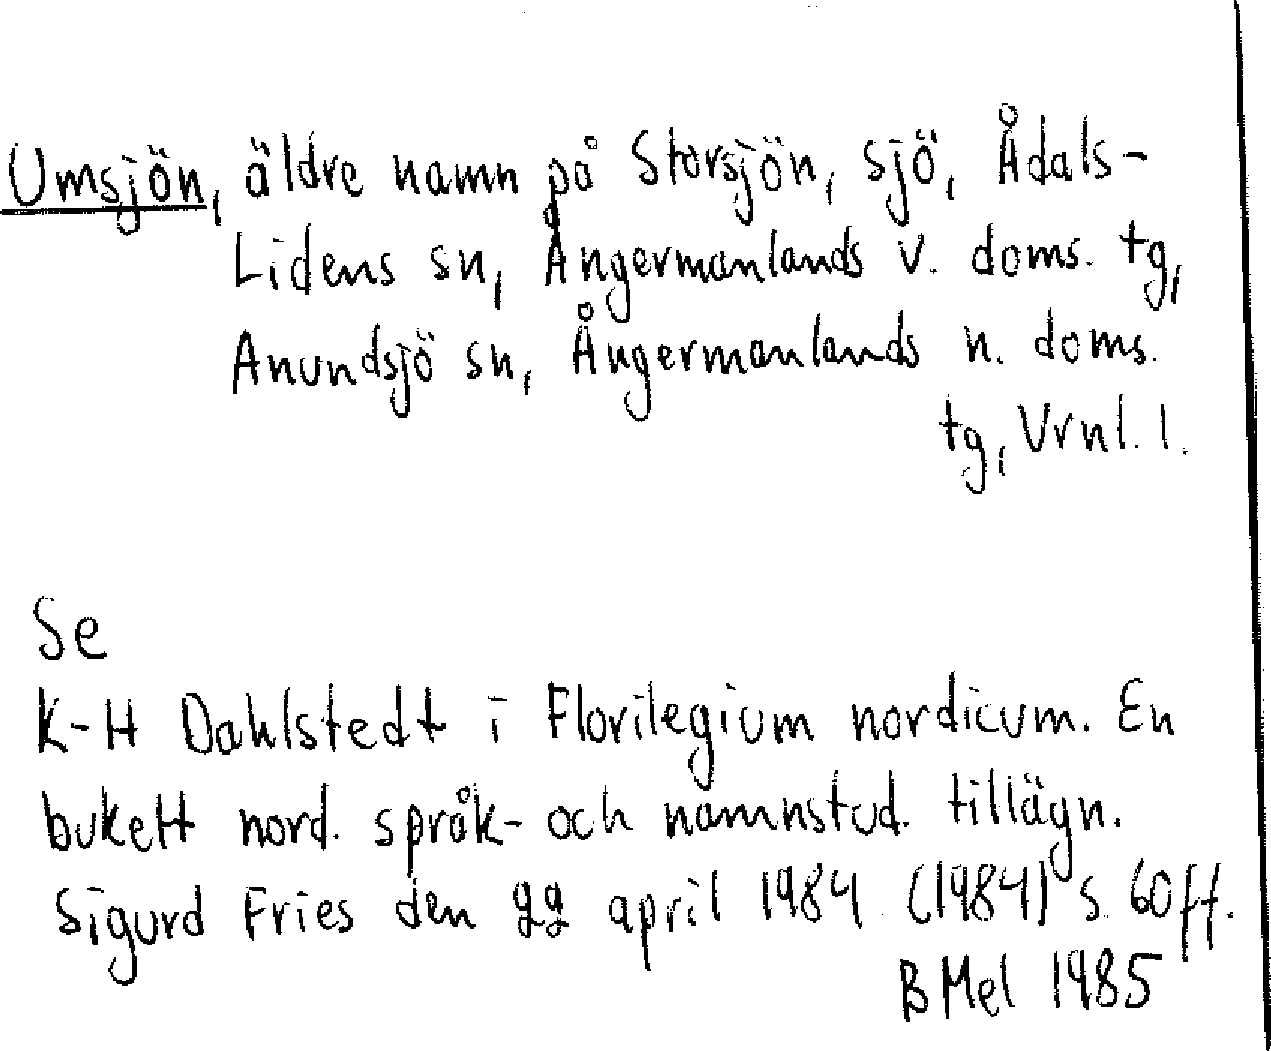 Umsjön, äldre namn på Storsjön, sjö, Ådals-
Lidens sn, Ångermanlands v. doms. tg,
Anundsjö sn, Ångermanlands n. doms.
tg, Vrnl. l.
Se
K-H Dahlstedt i Florilegium nordicum. En
bukett nord. språk- och namnstud. tillägn.
Sigurd Fries den 22 april 1984 (1984) s. 60 ff.
B Mel 1985